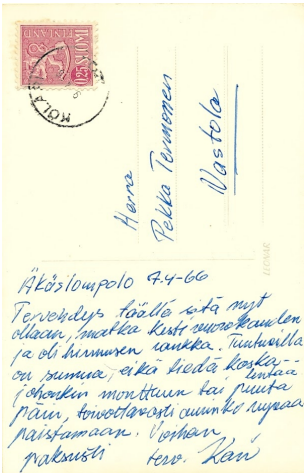 SUOMI
FINLAND
0,25
KOLARI
Herra
Pekka Termonen
Vastola
Äkäslompolo 7.4-66
Tervehdys täältä sitä nyt
ollaan, matka kesti vuorokauden
ja oli hirmusen rankka. Tuntureilla
on sumua, eikä tiedä koska
lintaa
johonkin monttuun tai puuta
päin, toivottavasti aurinko rupeaa
paistamaan. Voihan
paksusti
terv. Kari